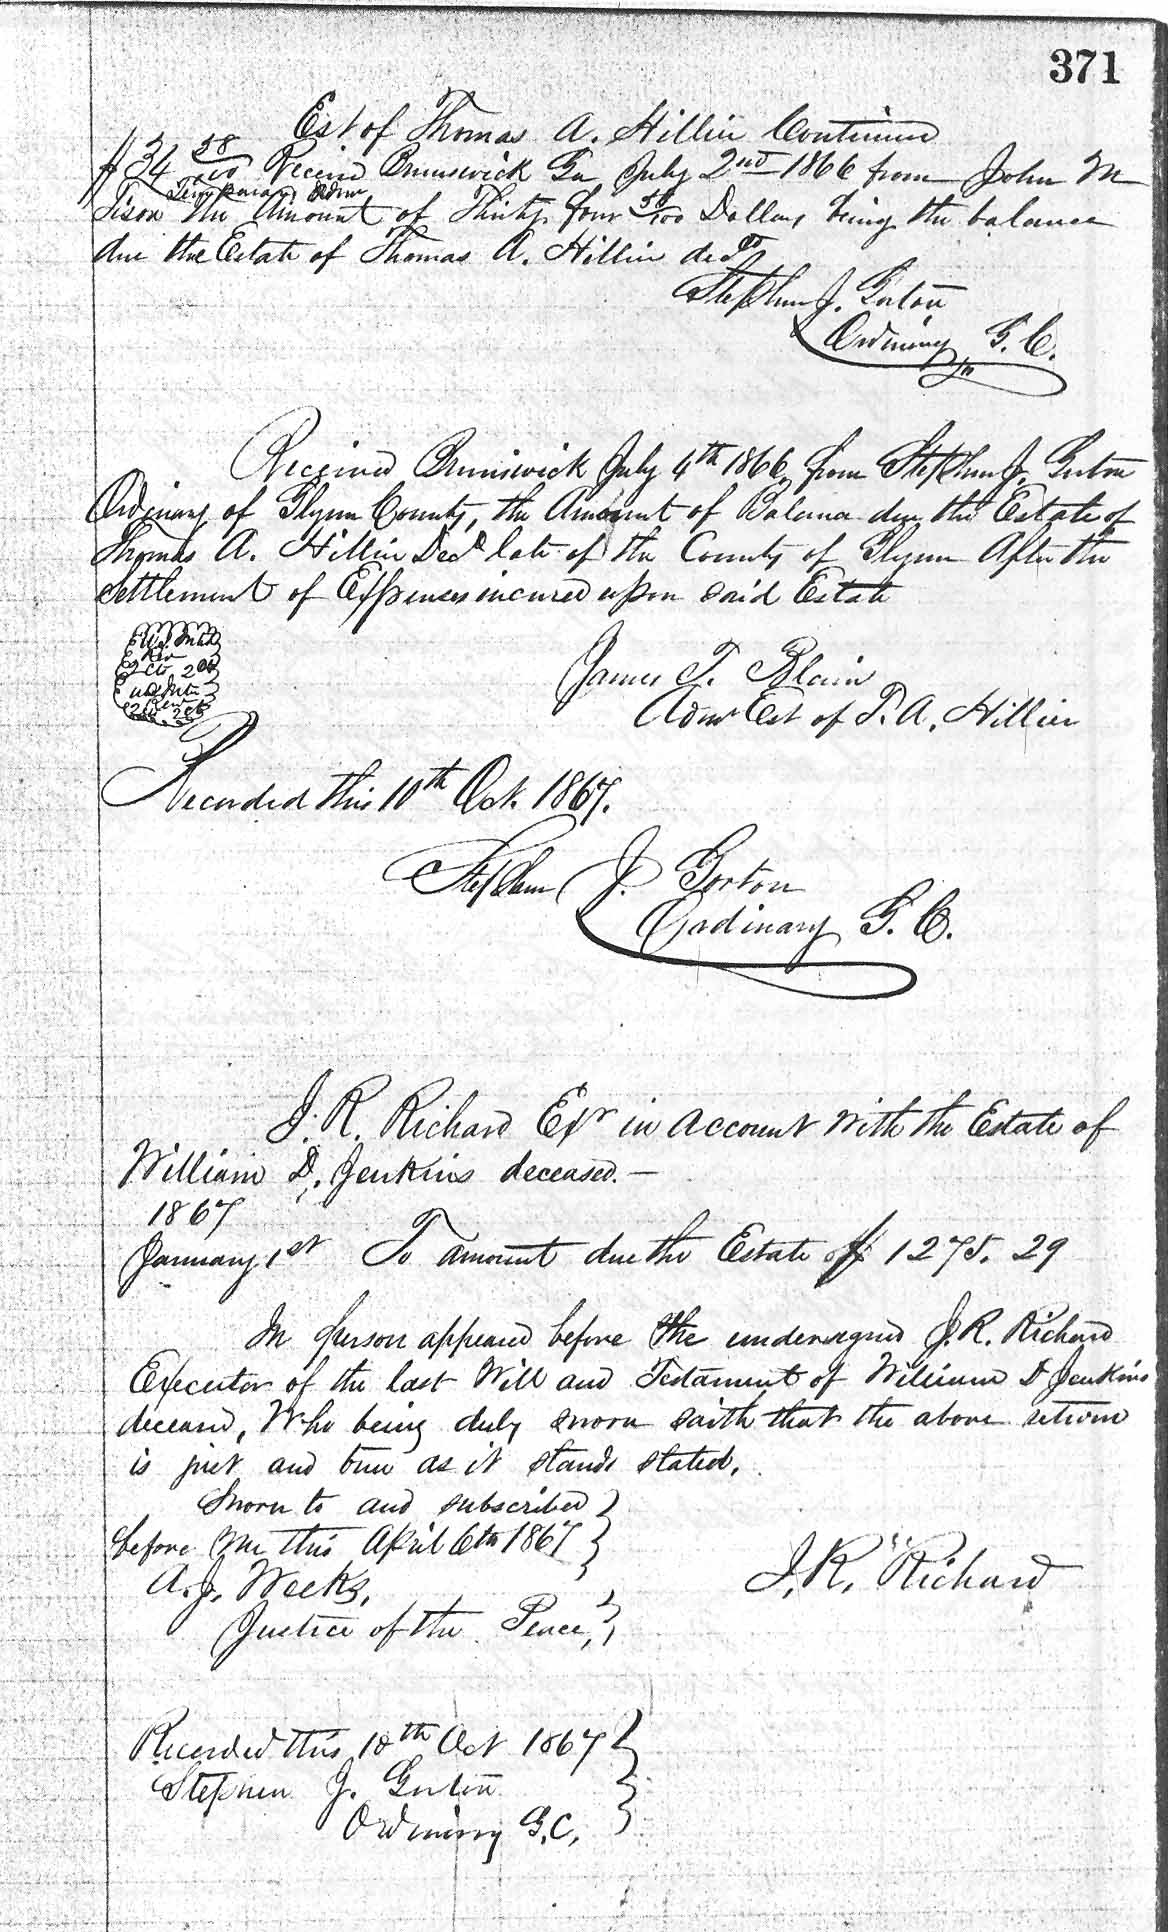 371
Est of Thomas A. Hillier Continued
$34 38/100 Received Brunswick Ga July 2nd 1866 from John M
Temporary Admr
Tison the Amount of Thirty four 38/100 Dollars being the balance
due the Estate of Thomas A. Hillier decd
Stephen J. Gorton
Ordinary G. C.
Received Brunswick July 4th 1866, from Stephen J. Gorton
Ordinary of Glynn County, the Amount of Balance due the Estate of
Thomas A. Hillier Decd late of the County of Glynn After the
settlement of Expenses incured upon said Estate
2 cts
James T. Blain
Admr Est of T. A. Hillier
Recorded this 10th Oct. 1867.
Stephen J. Gorton
Ordinary G. C.
J. R. Richard Exr in account with the Estate of
William D. Jenkins deceased. —
1867
January 1st To amount due the Estate of $ 1275. 29
In person appeared before the undersigned J. R. Richard
Executor of the last Will and Testament of William D Jenkins
deceased, Who being duly sworn saith that the above return
is just and true as it stands stated.
Sworn to and subscribed
before me this April 6th 1867
A. J. Weeks,
J. R. Richard
Justice of the Peace,
Recorded this 10th Oct 1867
Stephen J. Gorton
Ordinary G. C,